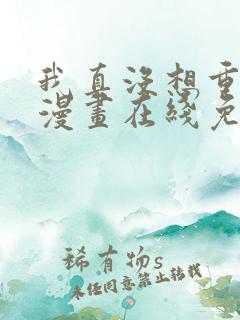 我真没想重
漫画在线免
稀有物s
未经同意禁止转载